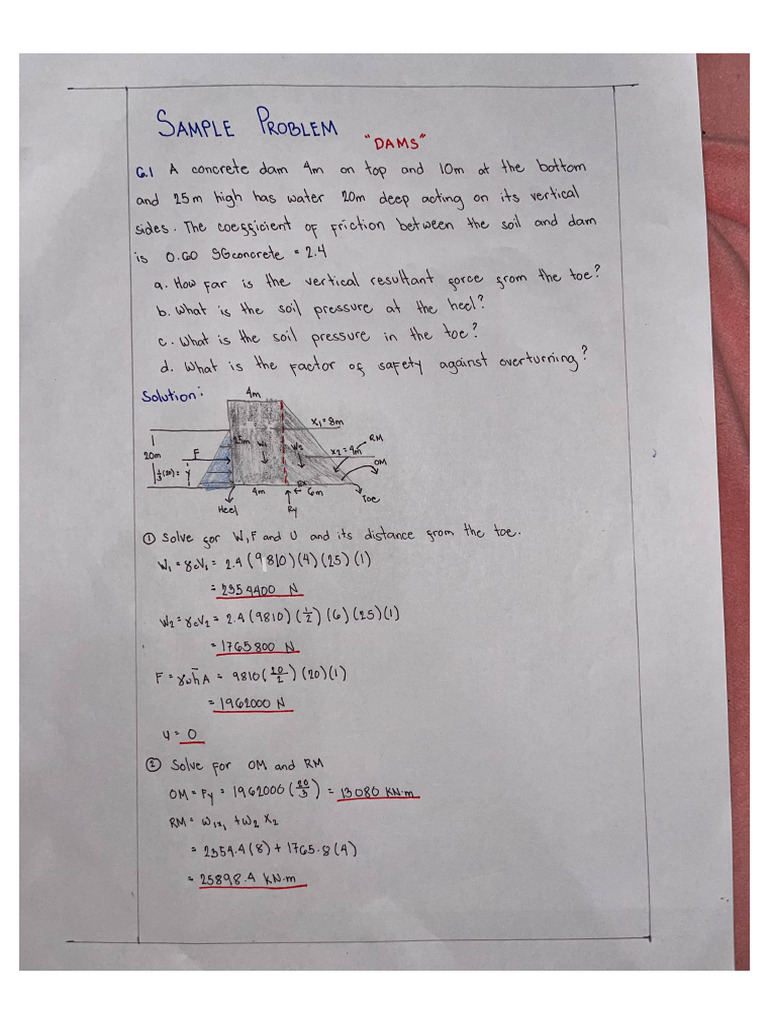 SAMPLE PROBLEM
"DAMS"
G.1 A concrete dam 4m on top and 10m at the bottom
and 25m high has water 20m deep acting on its vertical
sides. The coefficient of friction between the soil and dam
is 0.60 SGconcrete = 2.4
a. How far is the vertical resultant force from the toe?
b. What is the soil pressure at the heel?
c. What is the soil pressure in the toe?
d. What is the factor of safety against overturning?
Solution:
4m
x₁ = 8m
RM
20m
F
25m
W₁
W₂
x₂ = 4m
OM
⅓(20) = y
4m
Rx
6m
Toe
Heel
Ry
① Solve for W, F and U and its distance from the toe.
W₁ = γcV₁ = 2.4 (9810)(4)(25)(1)
= 2354400 N
W₂ = γcV₂ = 2.4 (9810)(1/2)(6)(25)(1)
= 1765800 N
F = γwh̄A = 9810(20/2)(20)(1)
= 1962000 N
U = 0
② Solve for OM and RM
OM = Fy = 1962000(20/3) = 13080 KN·m
RM = W₁x₁ + W₂ x₂
= 2354.4(8) + 1765.8(4)
= 25898.4 KN·m